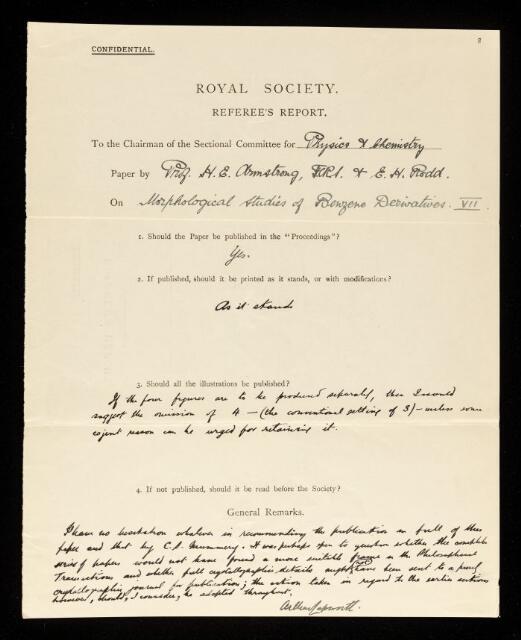 8
CONFIDENTIAL.
ROYAL SOCIETY.
REFEREE'S REPORT.
To the Chairman of the Sectional Committee for Physics & Chemistry
Paper by Prof. H. E. Armstrong, F.R.S. & E. H. Rodd.
On Morphological Studies of Benzene Derivatives. VII.
1. Should the Paper be published in the "Proceedings"?
Yes.
2. If published, should it be printed as it stands, or with modifications?
As it stands
3. Should all the illustrations be published?
If the four figures are to be produced separately, then I would
suggest the omission of 4 – (the conventional setting of 3) – unless some
cogent reason can be urged for retaining it.
4. If not published, should it be read before the Society?
General Remarks.
I have no hesitation whatever in recommending the publication in full of this
paper and that by C. S. Mummery. It was perhaps open to question whether the complete
series of papers would not have found a more suitable place in the Philosophical
Transactions and whether full crystallographic details might have been sent to a purely
crystallographic journal for publication; the action taken in regard to the earlier sections
however, should, I consider, be adopted throughout.
Arthur Lapworth.